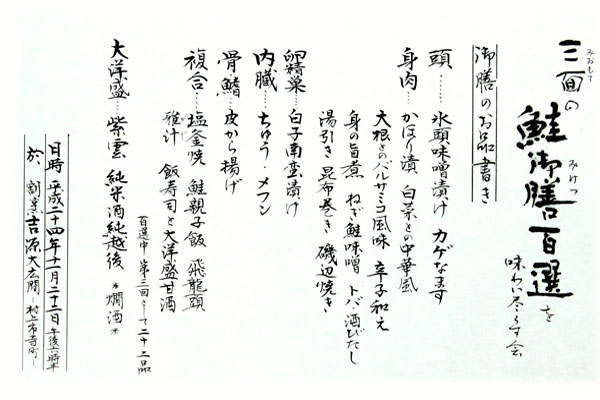 三面の
みおもて
鮭御膳百選を
みけつ
味わい尽くす会
御膳のお品書き
頭……氷頭味噌漬け カゲなます
身肉…かほり漬 白菜との中華風
大根とのバルサミコ風味 辛子和え
身の旨煮 ねぎ鮭味噌 トバ酒びたし
湯引き 昆布巻き 磯辺焼き
卵精巣…白子南蛮漬け
内臓…ちゅう・メフン
骨鰭…皮から揚げ
複合…塩釜焼 鮭親子飯 飛龍頭
雑汁 飯寿司と大洋盛甘酒
百選中 第三回として二十二品
大洋盛…紫雲 純米酒純越後 *燗酒*
日時 平成二十四年十一月二十二日 午後六時半
於 割烹吉源大広間 ー村上市寺町ー